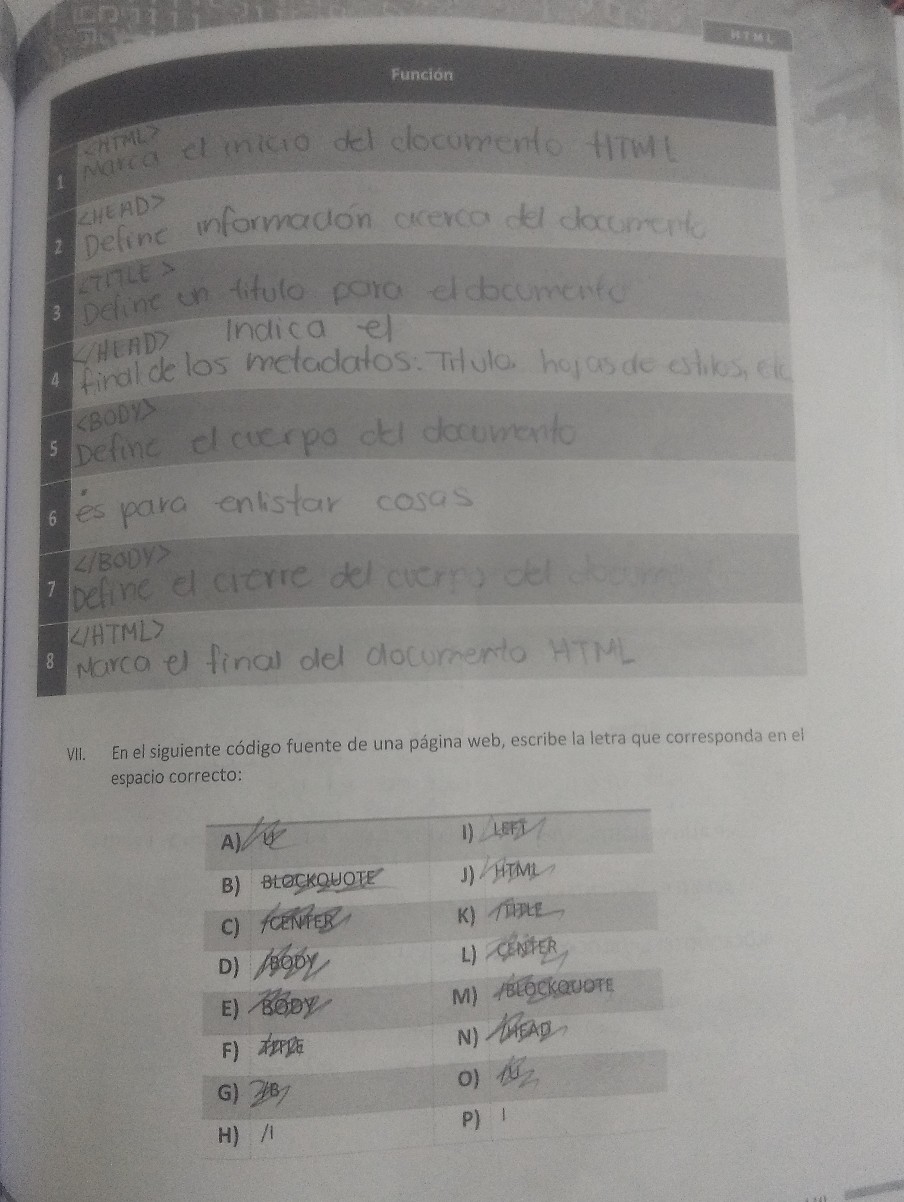 HTML
Función
<HTML>
1 Marca el inicio del documento HTML
<HEAD>
2 Define información acerca del documento
<TITLE>
3 Define un titulo para el documento
</HEAD> Indica el
4 final de los metadatos: Titulo, hojas de estilos, etc
<BODY>
5 Define el cuerpo del documento
6 es para enlistar cosas
</BODY>
7 Define el cierre del cuerpo del
</HTML>
8 Marca el final del documento HTML
VII. En el siguiente código fuente de una página web, escribe la letra que corresponda en el
espacio correcto:
A)
I) LEFT
B) BLOCKQUOTE
J) HTML
C) /CENTER
K) TITLE
D) /BODY
L) CENTER
E) BODY
M) /BLOCKQUOTE
F)
N) /HEAD
G) /B
O)
H) /I
P) I